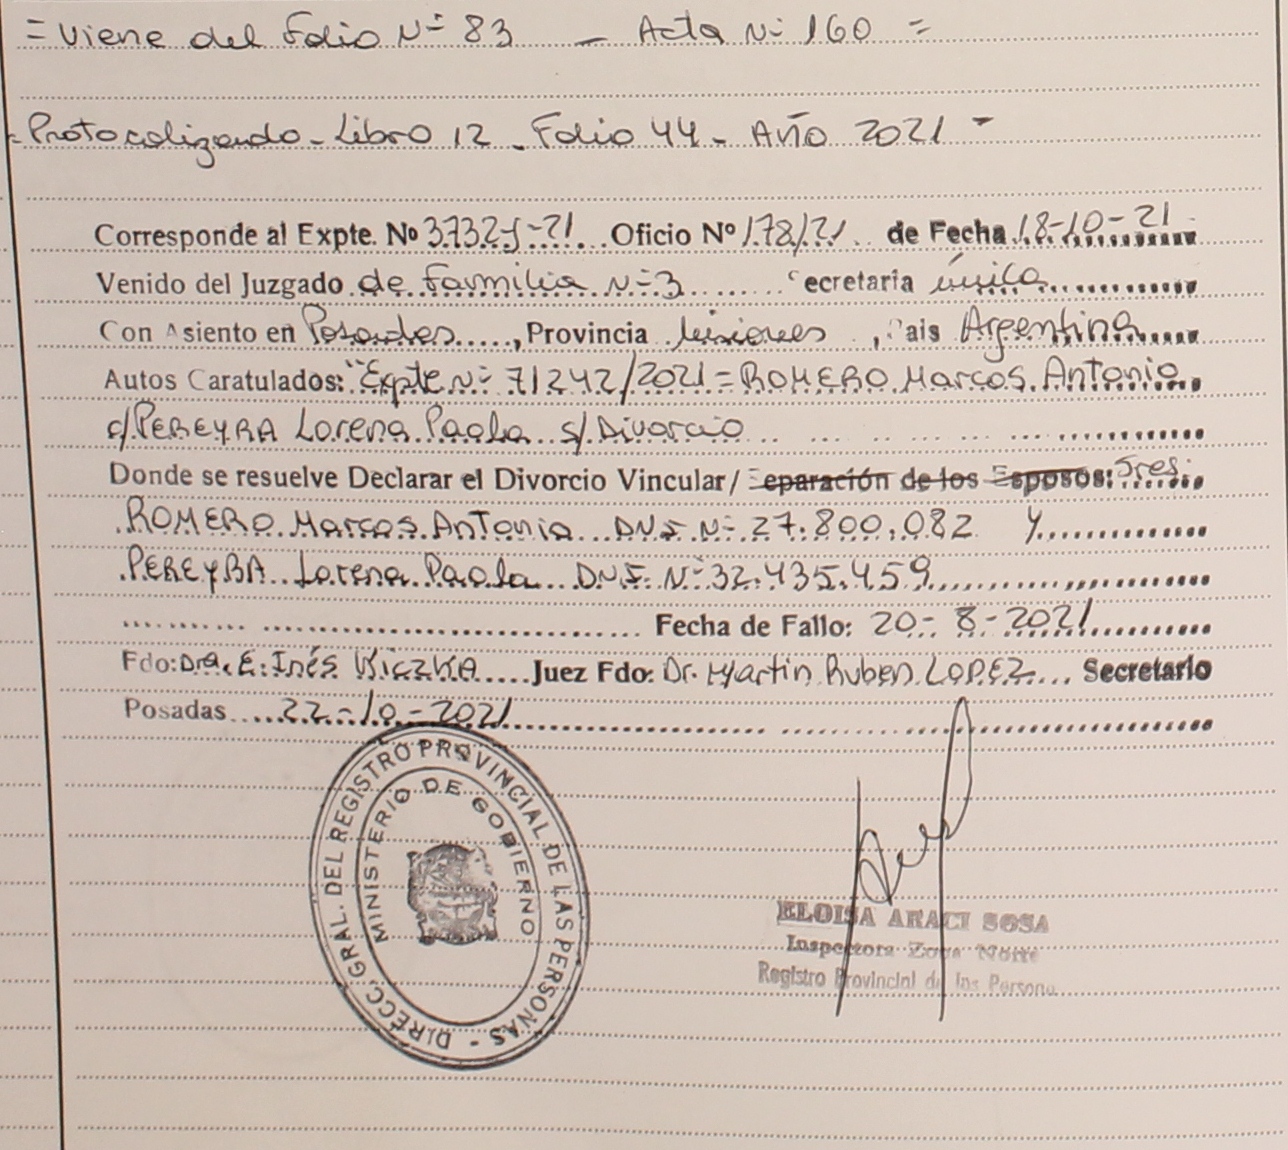 = Viene del Folio Nº 83 - Acta Nº 160 =
- Protocolizando - Libro 12 - Folio 44 - Año 2021 -
Corresponde al Expte. Nº 3732-J-21 Oficio Nº 178/21 de Fecha 18-10-21
Venido del Juzgado de Familia Nº 3 Secretaria única
Con Asiento en Posadas, Provincia Misiones, Pais Argentina
Autos Caratulados: "Expte Nº 71242/2021 = ROMERO Marcos Antonio
c/ PEREYRA Lorena Paola s/ Divorcio
Donde se resuelve Declarar el Divorcio Vincular/ Separación de los Esposos: Sres.
ROMERO Marcos Antonio DNI Nº 27.800.082 y
PEREYRA Lorena Paola DNI Nº 32.435.459
Fecha de Fallo: 20-8-2021
Fdo: Dra. E. Inés WICZKA Juez Fdo: Dr. Martin Ruben LOPEZ Secretario
Posadas 22-10-2021
DIRECC. GRAL. DEL REGISTRO PROVINCIAL DE LAS PERSONAS -
MINISTERIO DE GOBIERNO
ELOISA ARACI SOSA
Inspectora Zona Norte
Registro Provincial de las Persona